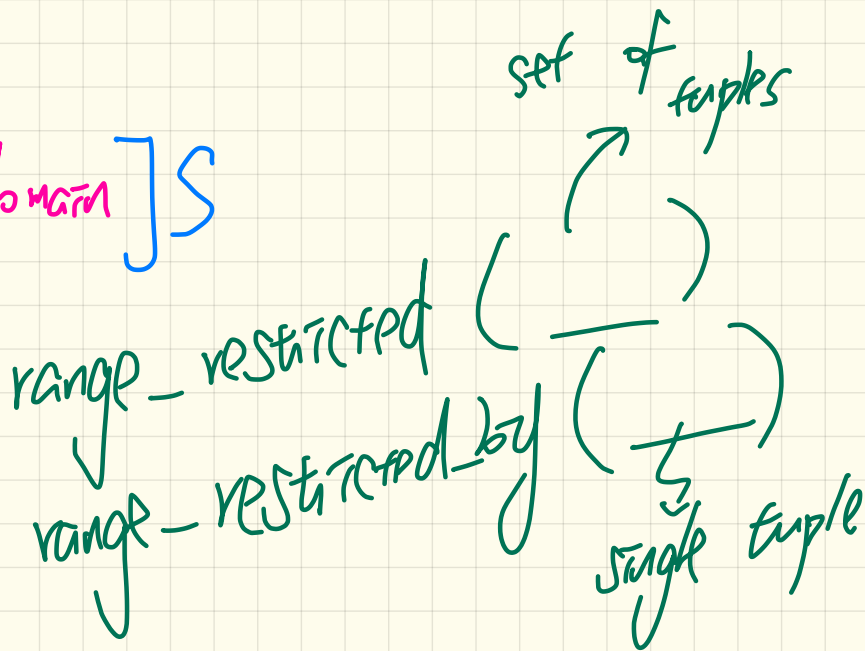 set of tuples
omain ] S
range_restricted ( __ )
range_restricted_by ( __ )
single tuple